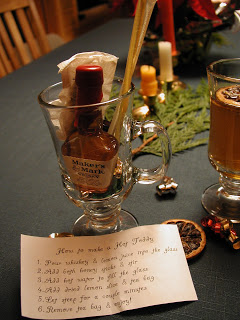 Maker's
Mark
How to make a Hot Toddy
1. Pour whiskey & lemon juice into the glass
2. Add both honey sticks & stir
3. Add hot water to fill the glass
4. Add dried lemon slice & tea bag
5. Let steep for a couple minutes
6. Remove tea bag & enjoy!